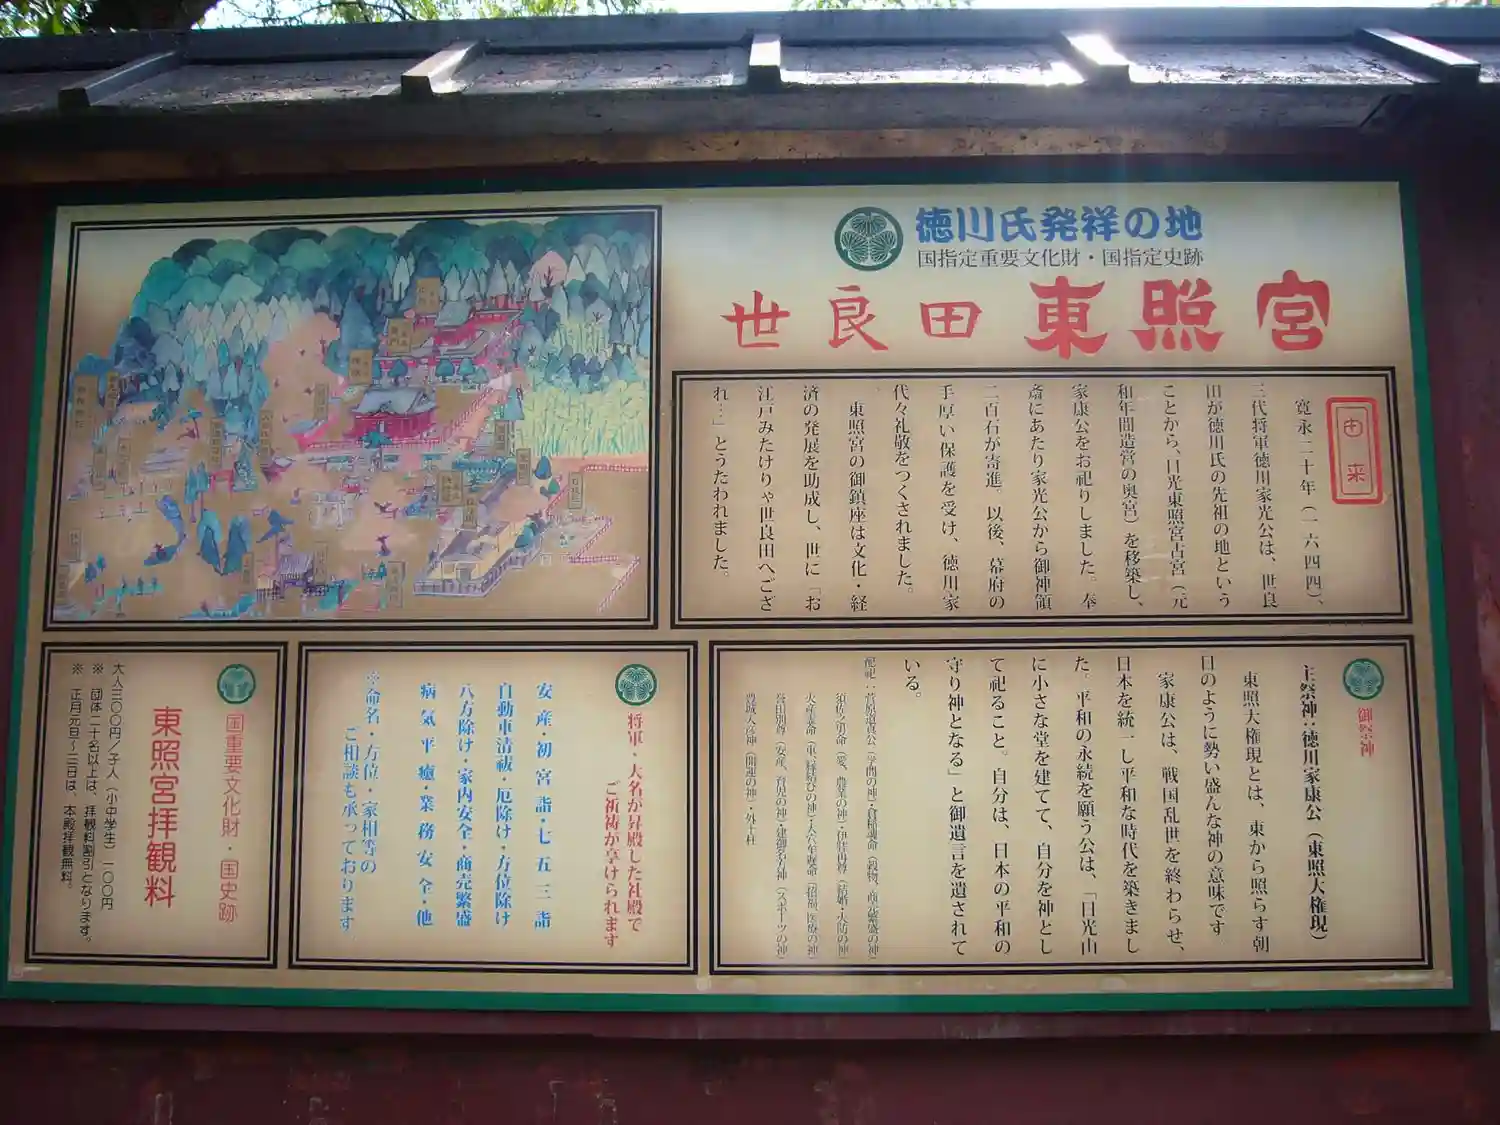 徳川氏発祥の地
国指定重要文化財・国指定史跡
世良田東照宮
由来
寛永二十年(一六四四)、
三代将軍徳川家光公は、世良
田が徳川氏の先祖の地という
ことから、日光東照宮古宮(元
和年間造営の奥宮)を移築し、
家康公をお祀りしました。奉
斎にあたり家光公から御神領
二百石が寄進。以後、幕府の
手厚い保護を受け、徳川家
代々礼敬をつくされました。
東照宮の御鎮座は文化・経
済の発展を助成し、世に「お
江戸みたけりゃ世良田へござ
れ…」とうたわれました。
御祭神
主祭神:徳川家康公(東照大権現)
東照大権現とは、東から照らす朝
日のように勢い盛んな神の意味です
家康公は、戦国乱世を終わらせ、
日本を統一し平和な時代を築きまし
た。平和の永続を願う公は、「日光山
に小さな堂を建てて、自分を神とし
て祀ること。自分は、日本の平和の
守り神となる」と御遺言を遺されて
いる。
配祀:菅原道真公(学問の神)・倉稲魂命(穀物、商売繁盛の神)
須佐之男命(愛、農業の神)・伊弉冉尊(結婚・火防の神)
誉田別尊(安産、育児の神)・建御名方神(スポーツの神)
豊城入彦神(開運の神)・外十柱
将軍・大名が昇殿した社殿で
ご祈祷が享けられます
安産・初宮詣・七五三詣
自動車清祓・厄除け・方位除け
八方除け・家内安全・商売繁盛
病気平癒・業務安全・他
※命名・方位・家相等の
ご相談も承っております。
国重要文化財・国史跡
東照宮拝観料
大人三〇〇円/子人(小中学生)一〇〇円
※ 団体二十名以上は、拝観料割引となります。
※ 正月元旦~三日は、本殿拝観無料。